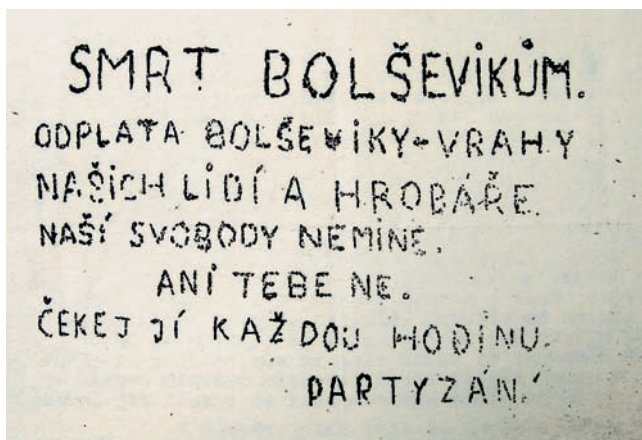 SMRT BOLŠEVIKŮM.
ODPLATA BOLŠEVIKY-VRAHY
NAŠICH LIDÍ A HROBAŘE
NAŠÍ SVOBODY NEMINE.
ANI TEBE NE.
ČEKEJ JÍ KAŽDOU HODINU.
PARTYZÁNI